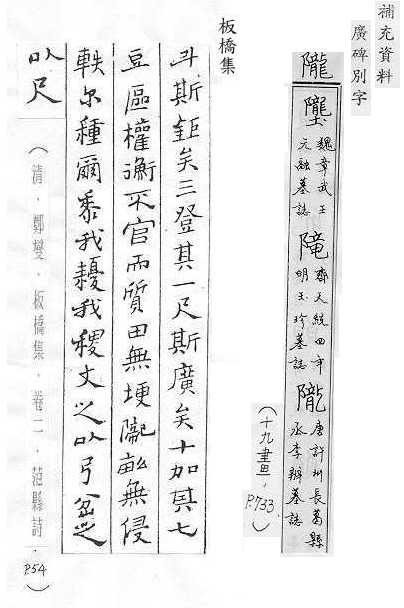 補充資料
廣碑別字
隴
魏章武王元融墓誌
齊天統四年明玉珍墓誌
唐許州長葛縣丞李辦墓誌
（十九畫，P.733.）
板橋集
斗斯鉅矣三登其一尺斯廣矣十加其七
豆區權衡不官而質田無埂隴畝無侵
軼尔種爾黍我耰我稷丈之以弓岔之
以尺
（清．鄭燮．板橋集．卷二．范縣詩．P.54）